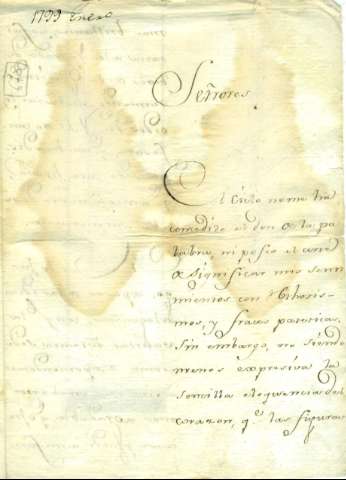 1799 Enero
Señores
El Cielo no me ha
consedido el don de la pa
labra, ni poseo el arte
de significar mis senti
mientos con
mos, y frases pateticas.
Sin embargo, no siendo
menos expresiva la
sencilla eloquencia del
corazon, q.e las figuras